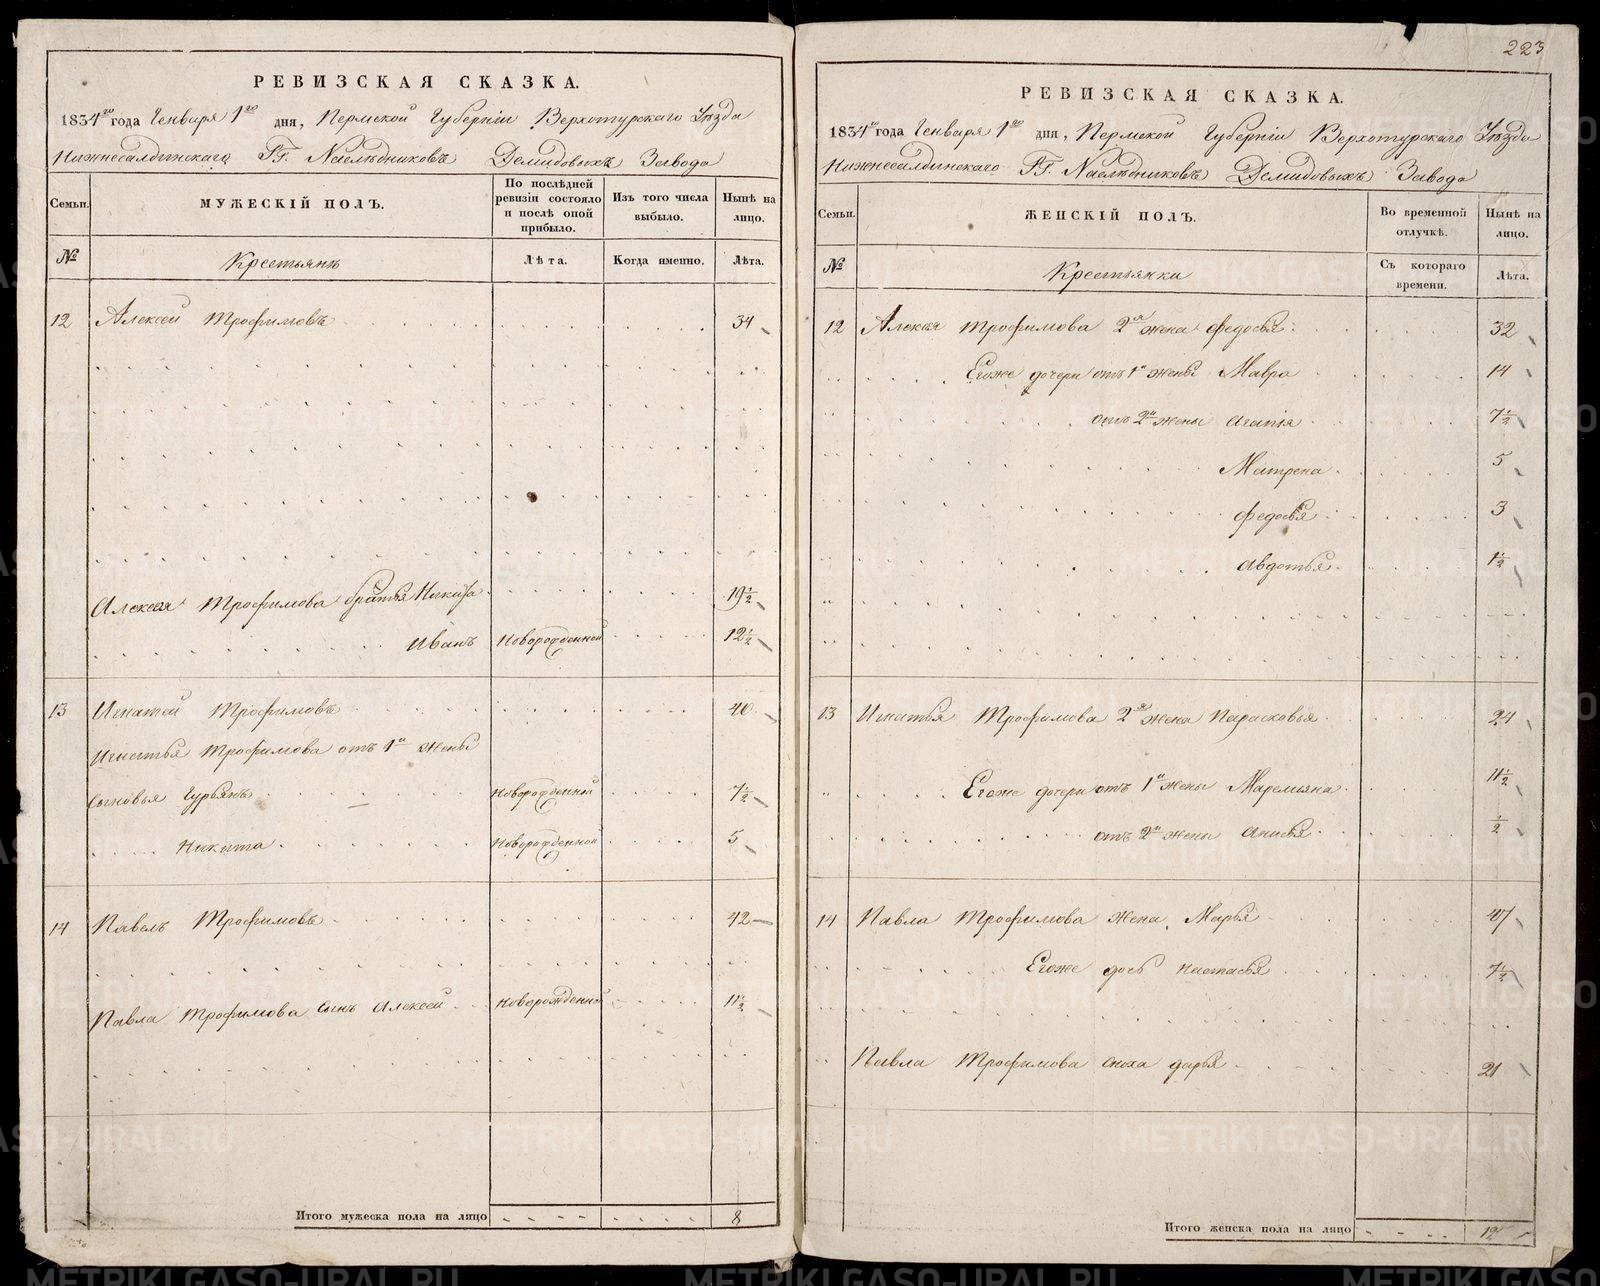 223
РЕВИЗСКАЯ СКАЗКА.
1834го года Генваря 1го дня, Пермской Губерніи Верхотурскаго Уѣзда
Нижнесалдинскаго ГГ. Наслѣдниковъ Демидовыхъ Завода
Семьи.
МУЖЕСКІЙ ПОЛЪ.
По послѣдней ревизіи состояло и послѣ оной прибыло.
Изъ того числа выбыло.
Нынѣ на лицо.
№
Крестьянъ
Лѣта.
Когда именно.
Лѣта.
12 Алексей Трофимовъ 34
Алексея Трофимова братья Никита 19½
Иванъ Новорожденной 12½
13 Игнатей Трофимовъ 40
Игнатья Трофимова отъ 1й жены
сыновья Гурьянъ Новорожденной 7½
Никита Новорожденной 5
14 Павелъ Трофимовъ 42
Павла Трофимова сынъ Алексей Новорожденной 11½
Итого мужеска пола на лицо 8
РЕВИЗСКАЯ СКАЗКА.
1834го года Генваря 1го дня, Пермской Губерніи Верхотурскаго Уѣзда
Нижнесалдинскаго ГГ. Наслѣдниковъ Демидовыхъ Завода
Семьи.
ЖЕНСКІЙ ПОЛЪ.
Во временной отлучкѣ.
Нынѣ на лицо.
№
Крестьянки
Съ котораго времени.
Лѣта.
12 Алексея Трофимова 2я жена Федосья 32
Егоже дочери отъ 1й жены Мавра 14
отъ 2й жены Агапія 7½
Матрена 5
Федосья 3
Авдотья 1½
13 Игнатья Трофимова 2я жена Парасковья 24
Егоже дочери отъ 1й жены Маремьяна 11½
отъ 2й жены Анисья ½
14 Павла Трофимова жена Марья 47
Егоже дочь Настасья 7½
Павла Трофимова сноха Дарья 21
Итого женска пола на лицо 12
METRIKI.GASO-URAL.RU